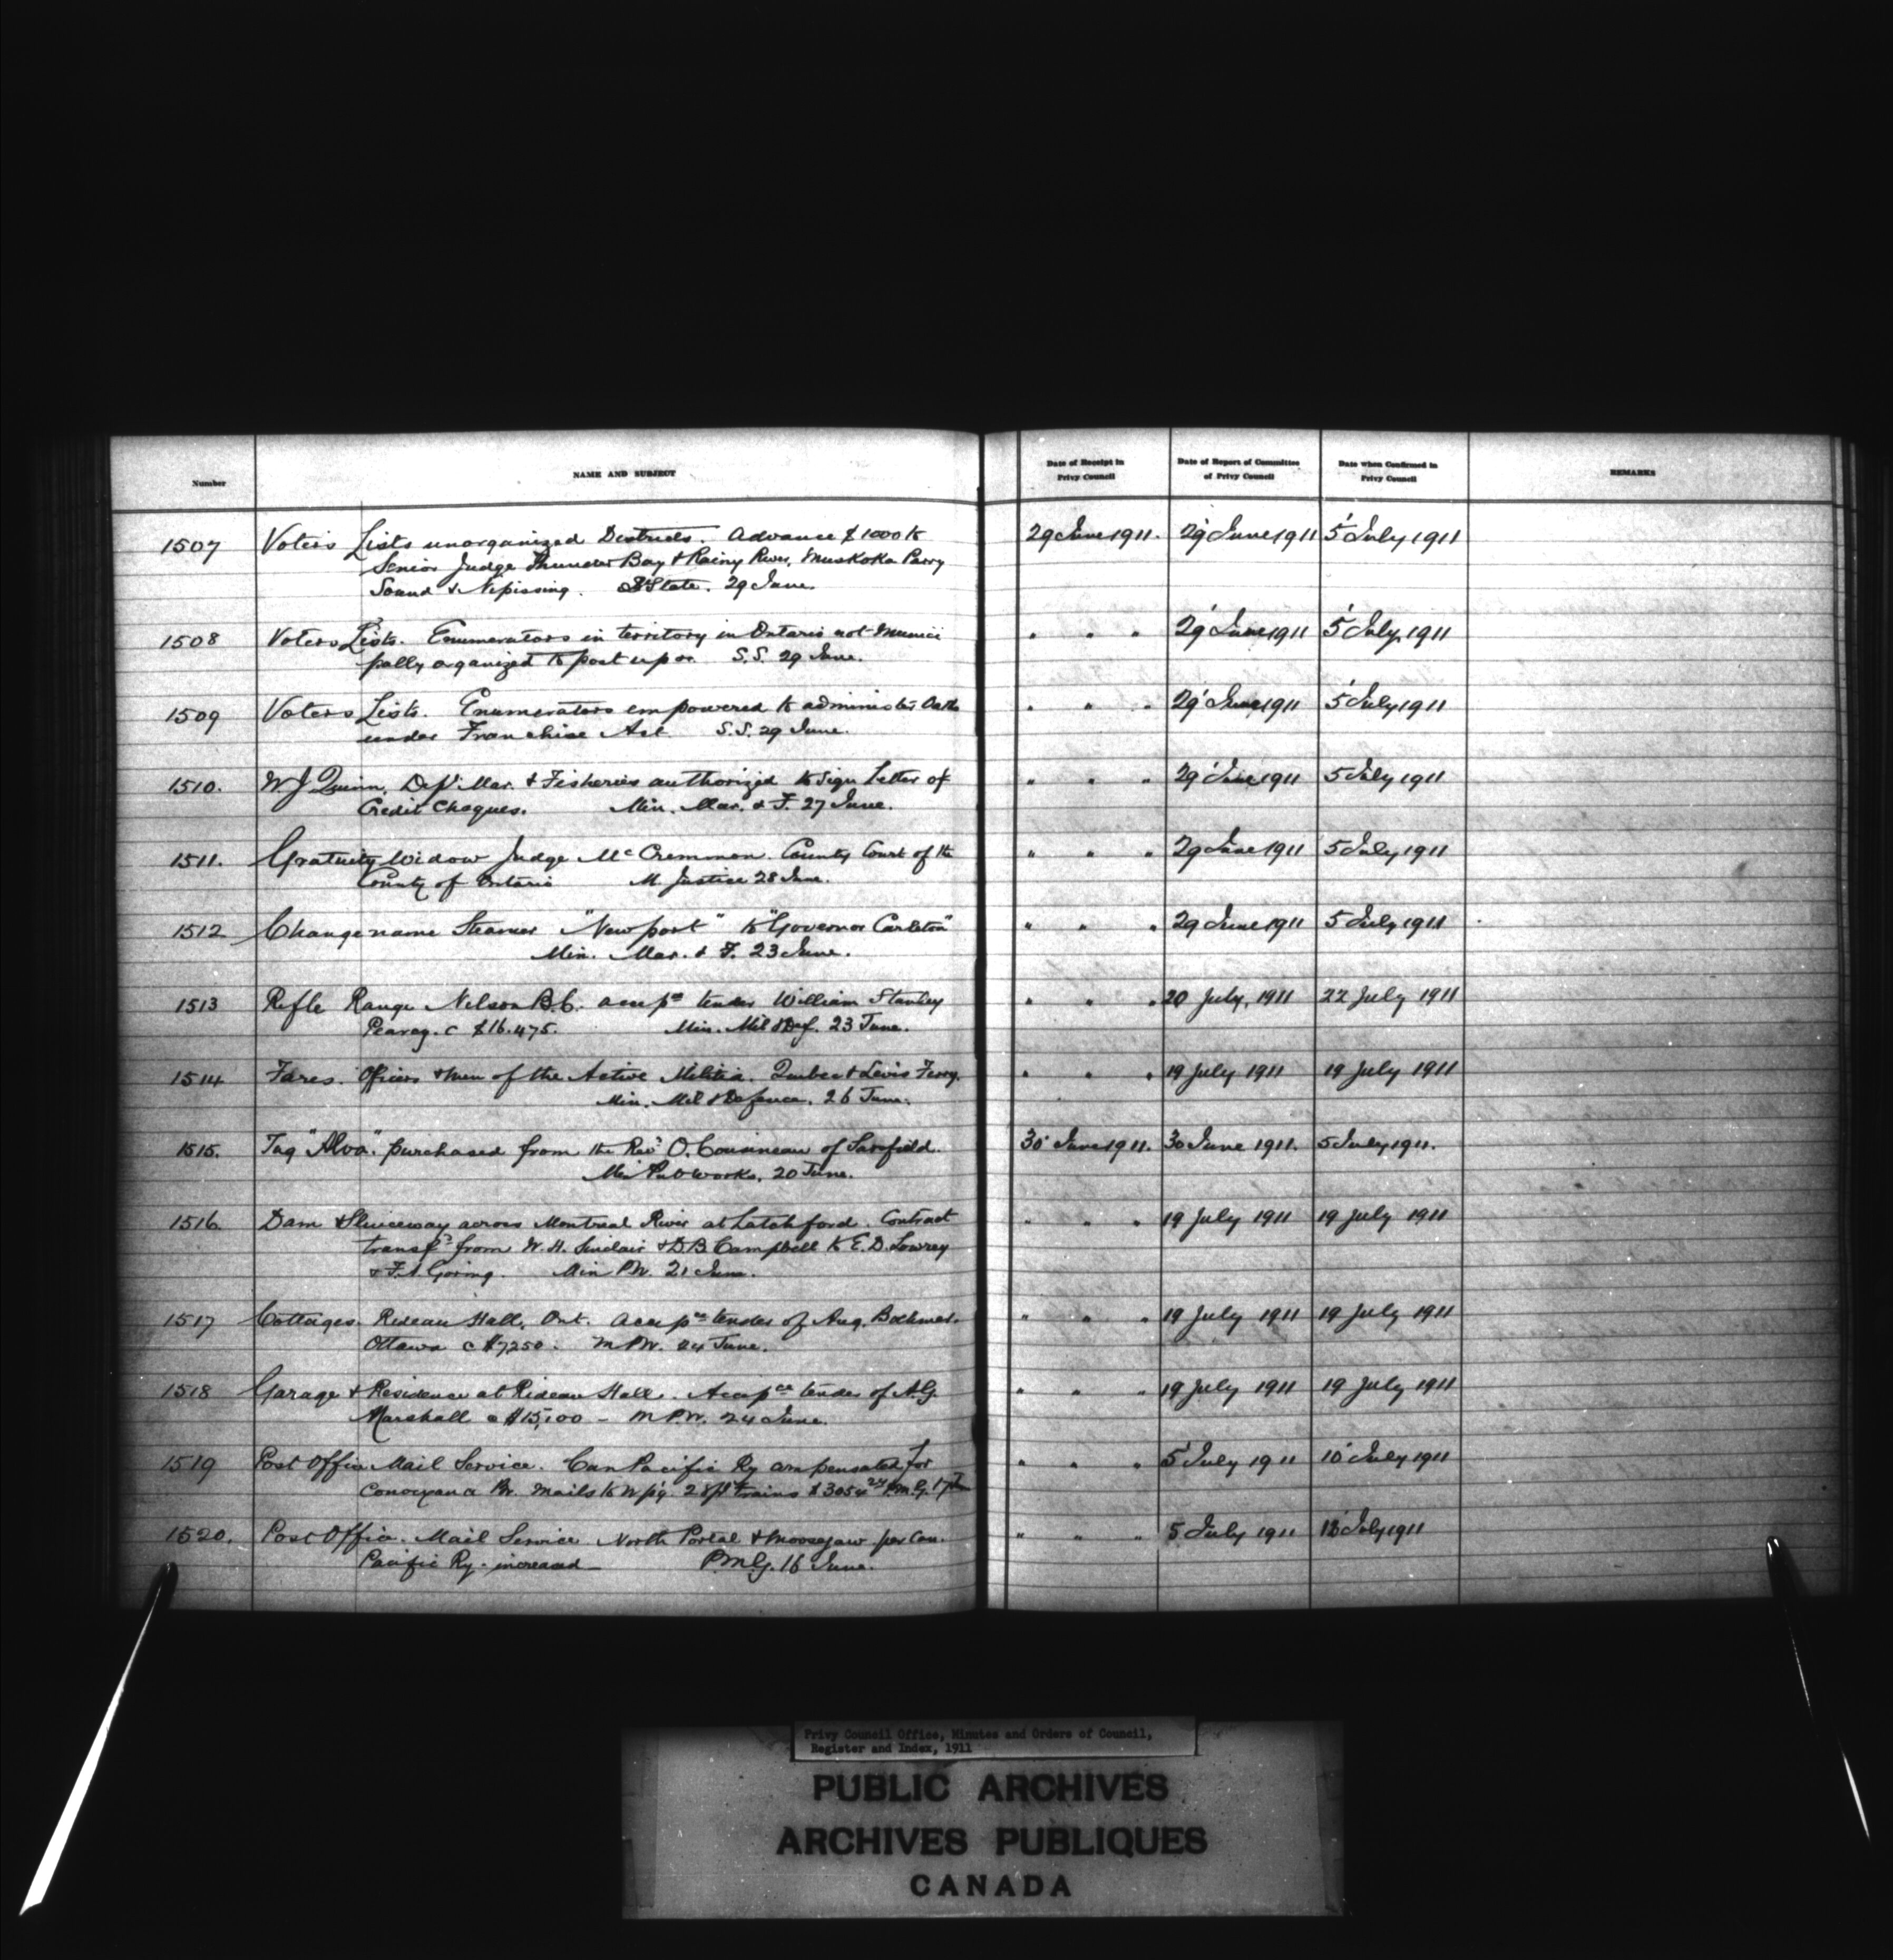 Number
NAME AND SUBJECT
Date of Receipt in Privy Council
Date of Report of Committee of Privy Council
Date when Confirmed in Privy Council
REMARKS
1507 Voters Lists unorganized Districts. Advance $1000 to 29 June 1911. 29 June 1911 5 July 1911
Senior Judge Thunder Bay & Rainy River, Muskoka Parry
Sound & Nipissing. State. 29 June.
1508 Voters Lists. Enumerators in territory in Ontario not Munici " " " 29 June 1911 5 July, 1911
pally organized to post up on S.S. 29 June.
1509 Voters Lists. Enumerators empowered to administer Oaths " " " 29 June 1911 5 July 1911
under Franchise Act S.S. 29 June.
1510. W J Quinn, Dep' Mar. & Fisheries authorized to sign Letter of " " " 29 June 1911 5 July 1911
Credit Cheques. Min. Mar. & F. 27 June.
1511. Gratuity Widow Judge McCremmon. County Court of the " " " 29 June 1911 5 July 1911
County of Ontario M. Justice 28 June.
1512 Change name Steamer "Newport" to "Governor Carleton" " " " 29 June 1911 5 July 1911
Min. Mar. & F. 23 June.
1513 Rifle Range Nelson B.C. accepce tender William Stanley " " " 20 July, 1911 22 July 1911
Pearcy. c $16.475. Min. Mil & Def. 23 June.
1514 Fares. Officers & men of the Active Militia. Quebec & Levis Ferry. " " " 19 July 1911 19 July 1911
Min. Mil & Defence. 26 June.
1515. Tug "Alva". purchased from the Revd O. Cousineau of Sarsfield. 30 June 1911. 30 June 1911. 5 July 1911.
Min Pub Works. 20 June.
1516. Dam & Sluiceway across Montreal River at Latchford. Contract " " " 19 July 1911 19 July 1911
transfd from W. H. Sinclair & D.B. Campbell to E. D. Lowrey
& F. A. Goring. Min PW. 21 June.
1517 Cottages. Rideau Hall, Ont. accepce tender of Aug. Boehmer. " " " 19 July 1911 19 July 1911
Ottawa c $7250. M PW. 24 June.
1518 Garage & Residence at Rideau Hall. Accepce tender of A.G. " " " 19 July 1911 19 July 1911
Marshall c $15,100 – M P.W. 24 June.
1519 Post Office Mail Service. Can Pacific Ry compensated for " " " 5 July 1911 10 July 1911
Conveyance Br. Mails to Wpg. 2 spl trains $3054 24 P.M.G. 17 June
1520. Post Office. Mail Service North Portal & Moosejaw per Can. " " " 5 July 1911 July 1911
Pacific Ry. increased — P.M.G. 16 June.
Privy Council Office, Minutes and Orders of Council,
Register and Index, 1911
PUBLIC ARCHIVES
ARCHIVES PUBLIQUES
CANADA